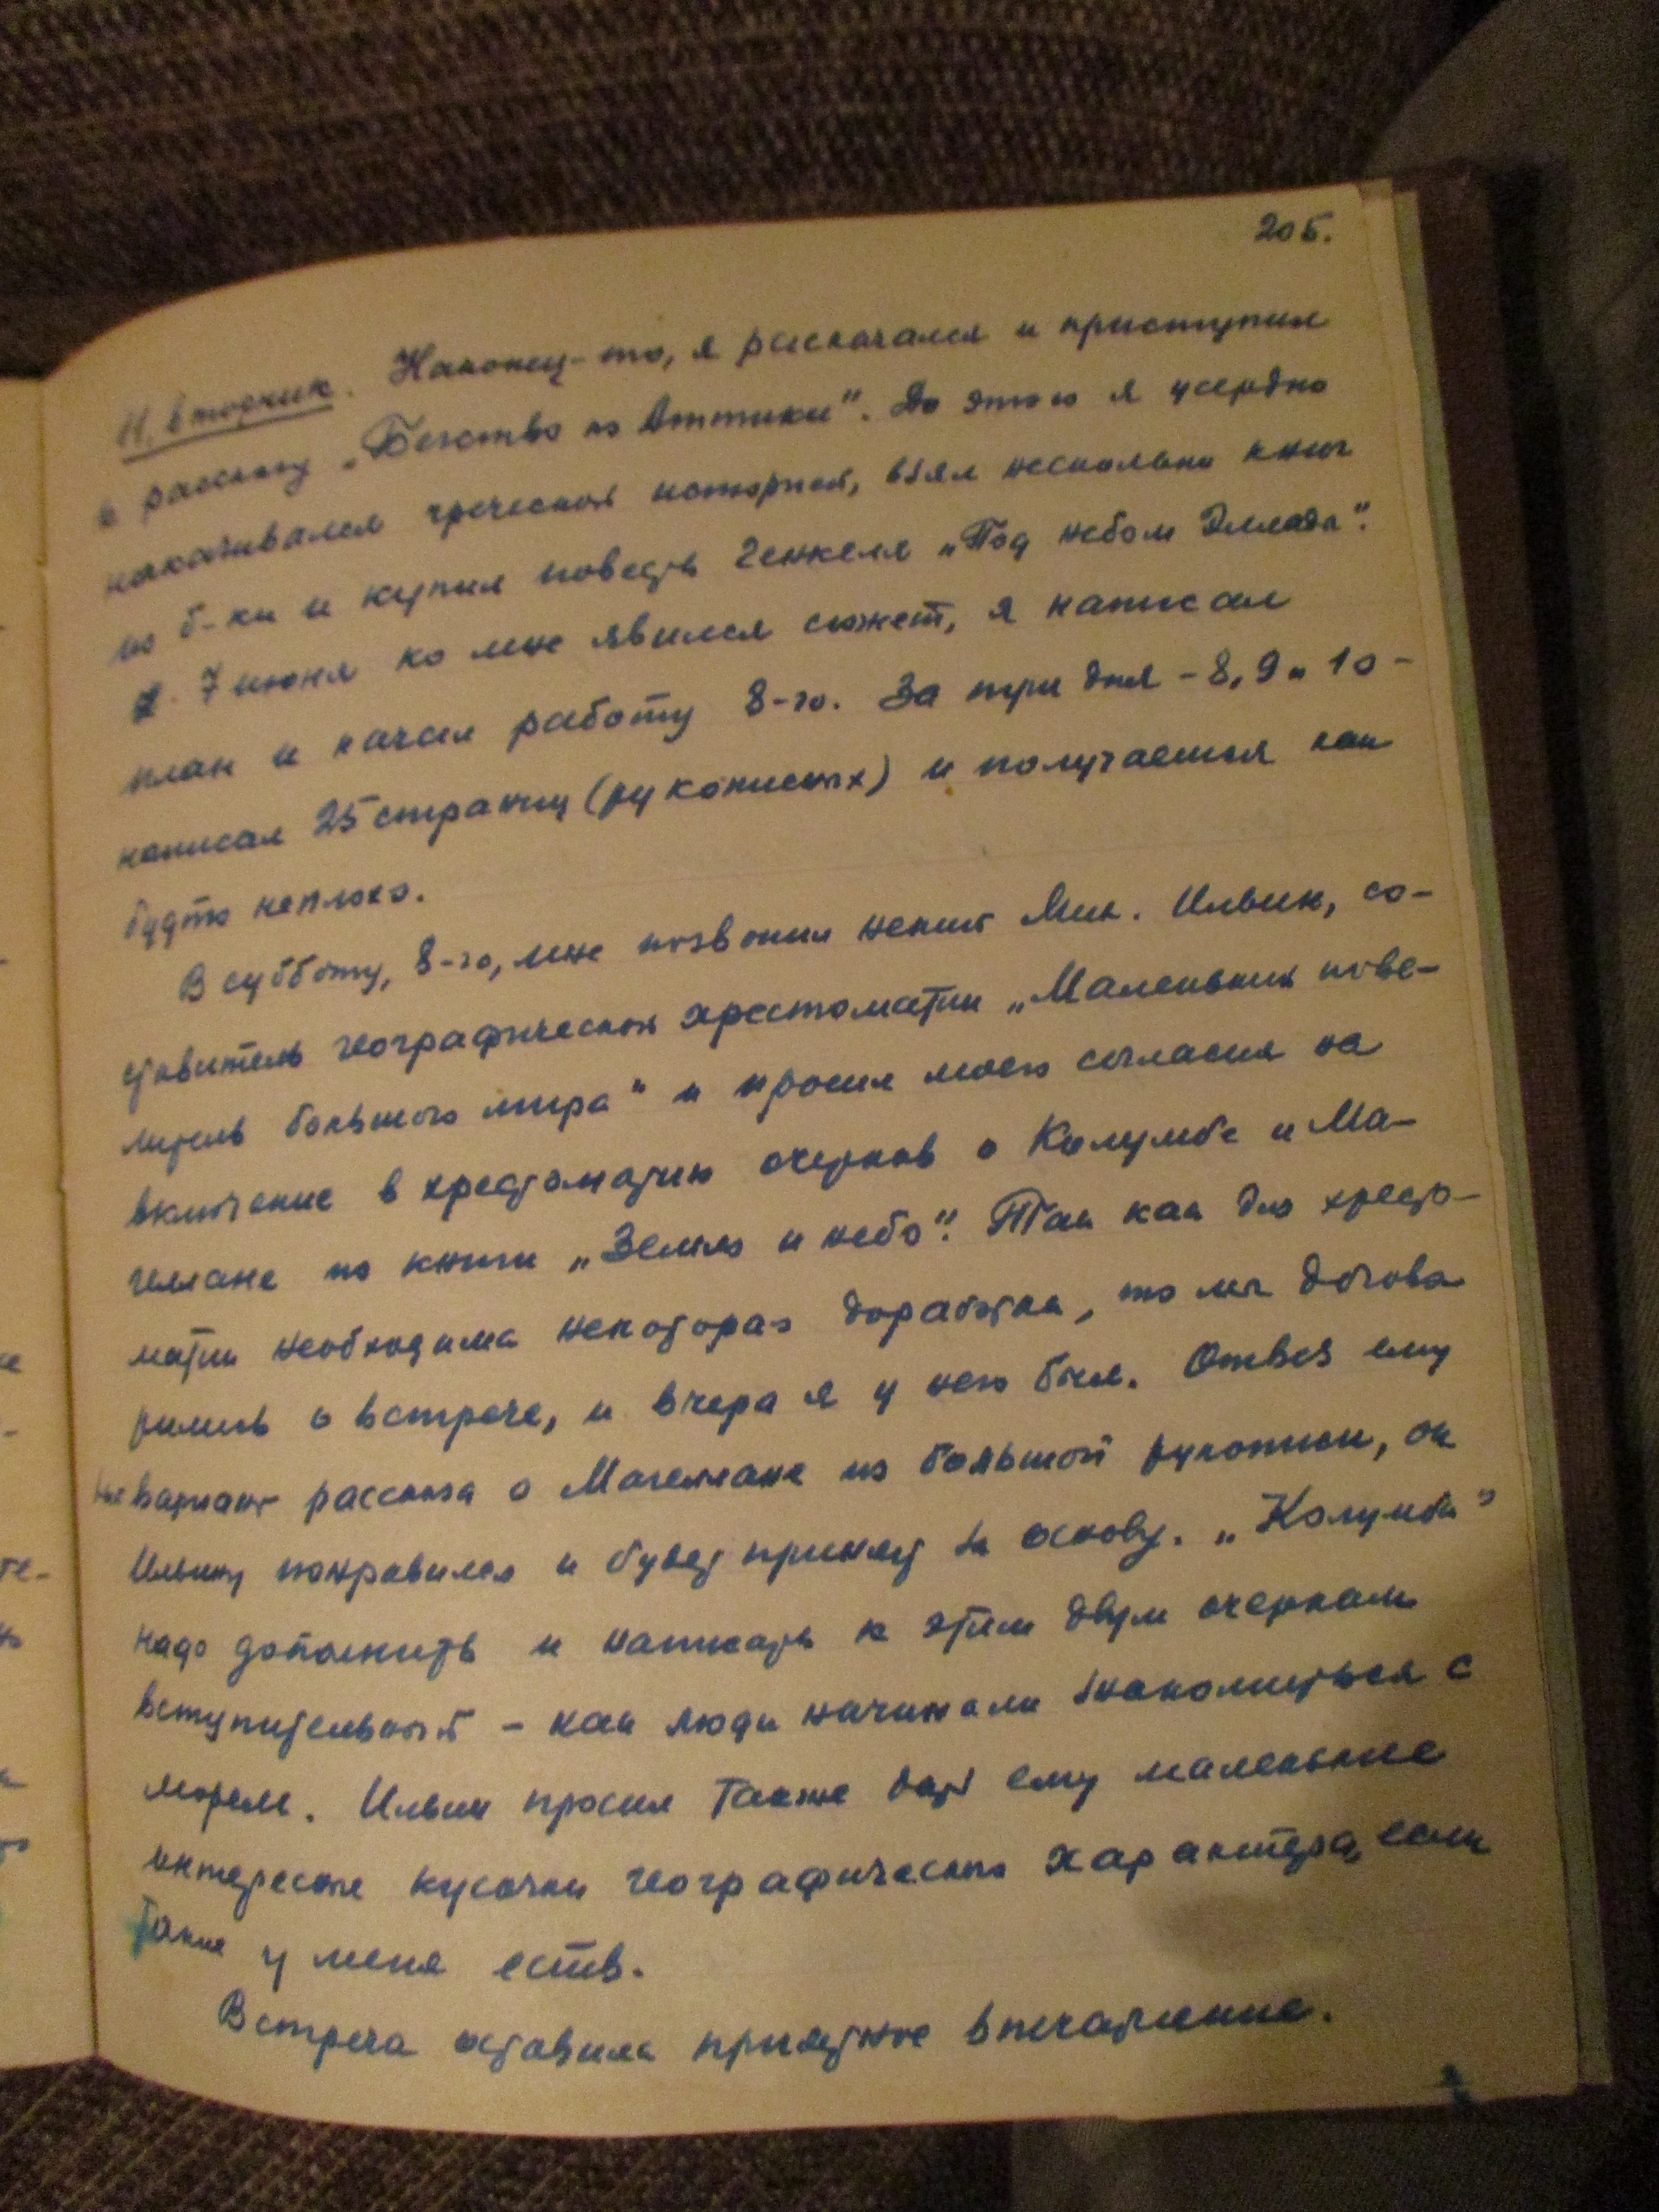 205.
11, вторник. Наконец-то, я раскачался и приступил
к рассказу „Бегство из Аттики“. До этого я усердно
накачивался греческой историей, взял несколько книг
из б-ки и купил повесть Генкеля „Под небом Эллады“.
7 июня ко мне явился сюжет, я написал
план и начал работу 8-го. За три дня – 8, 9 и 10 –
написал 25 страниц (рукописных) и получается как
будто неплохо.
В субботу, 8-го, мне позвонил некий Мих. Ильин, со-
ставитель географической хрестоматии „Маленький пове-
литель большого мира“ и просил моего согласия на
включение в хрестоматию очерков о Колумбе и Ма-
геллане из книги „Земля и небо“. Так как для хресто-
матии необходима некоторая доработка, то мы догова
рились о встрече, и вчера я у него был. Отвез ему
вариант рассказа о Магеллане из большой рукописи, он
Ильину понравился и будет принят за основу. „Колумба“
надо дополнить и написать к этим двум очеркам
вступительный – как люди начинали знакомиться с
морем. Ильин просил также дать ему маленькие
интересные кусочки географического характера, если
такие у меня есть.
Встреча оставила приятное впечатление.